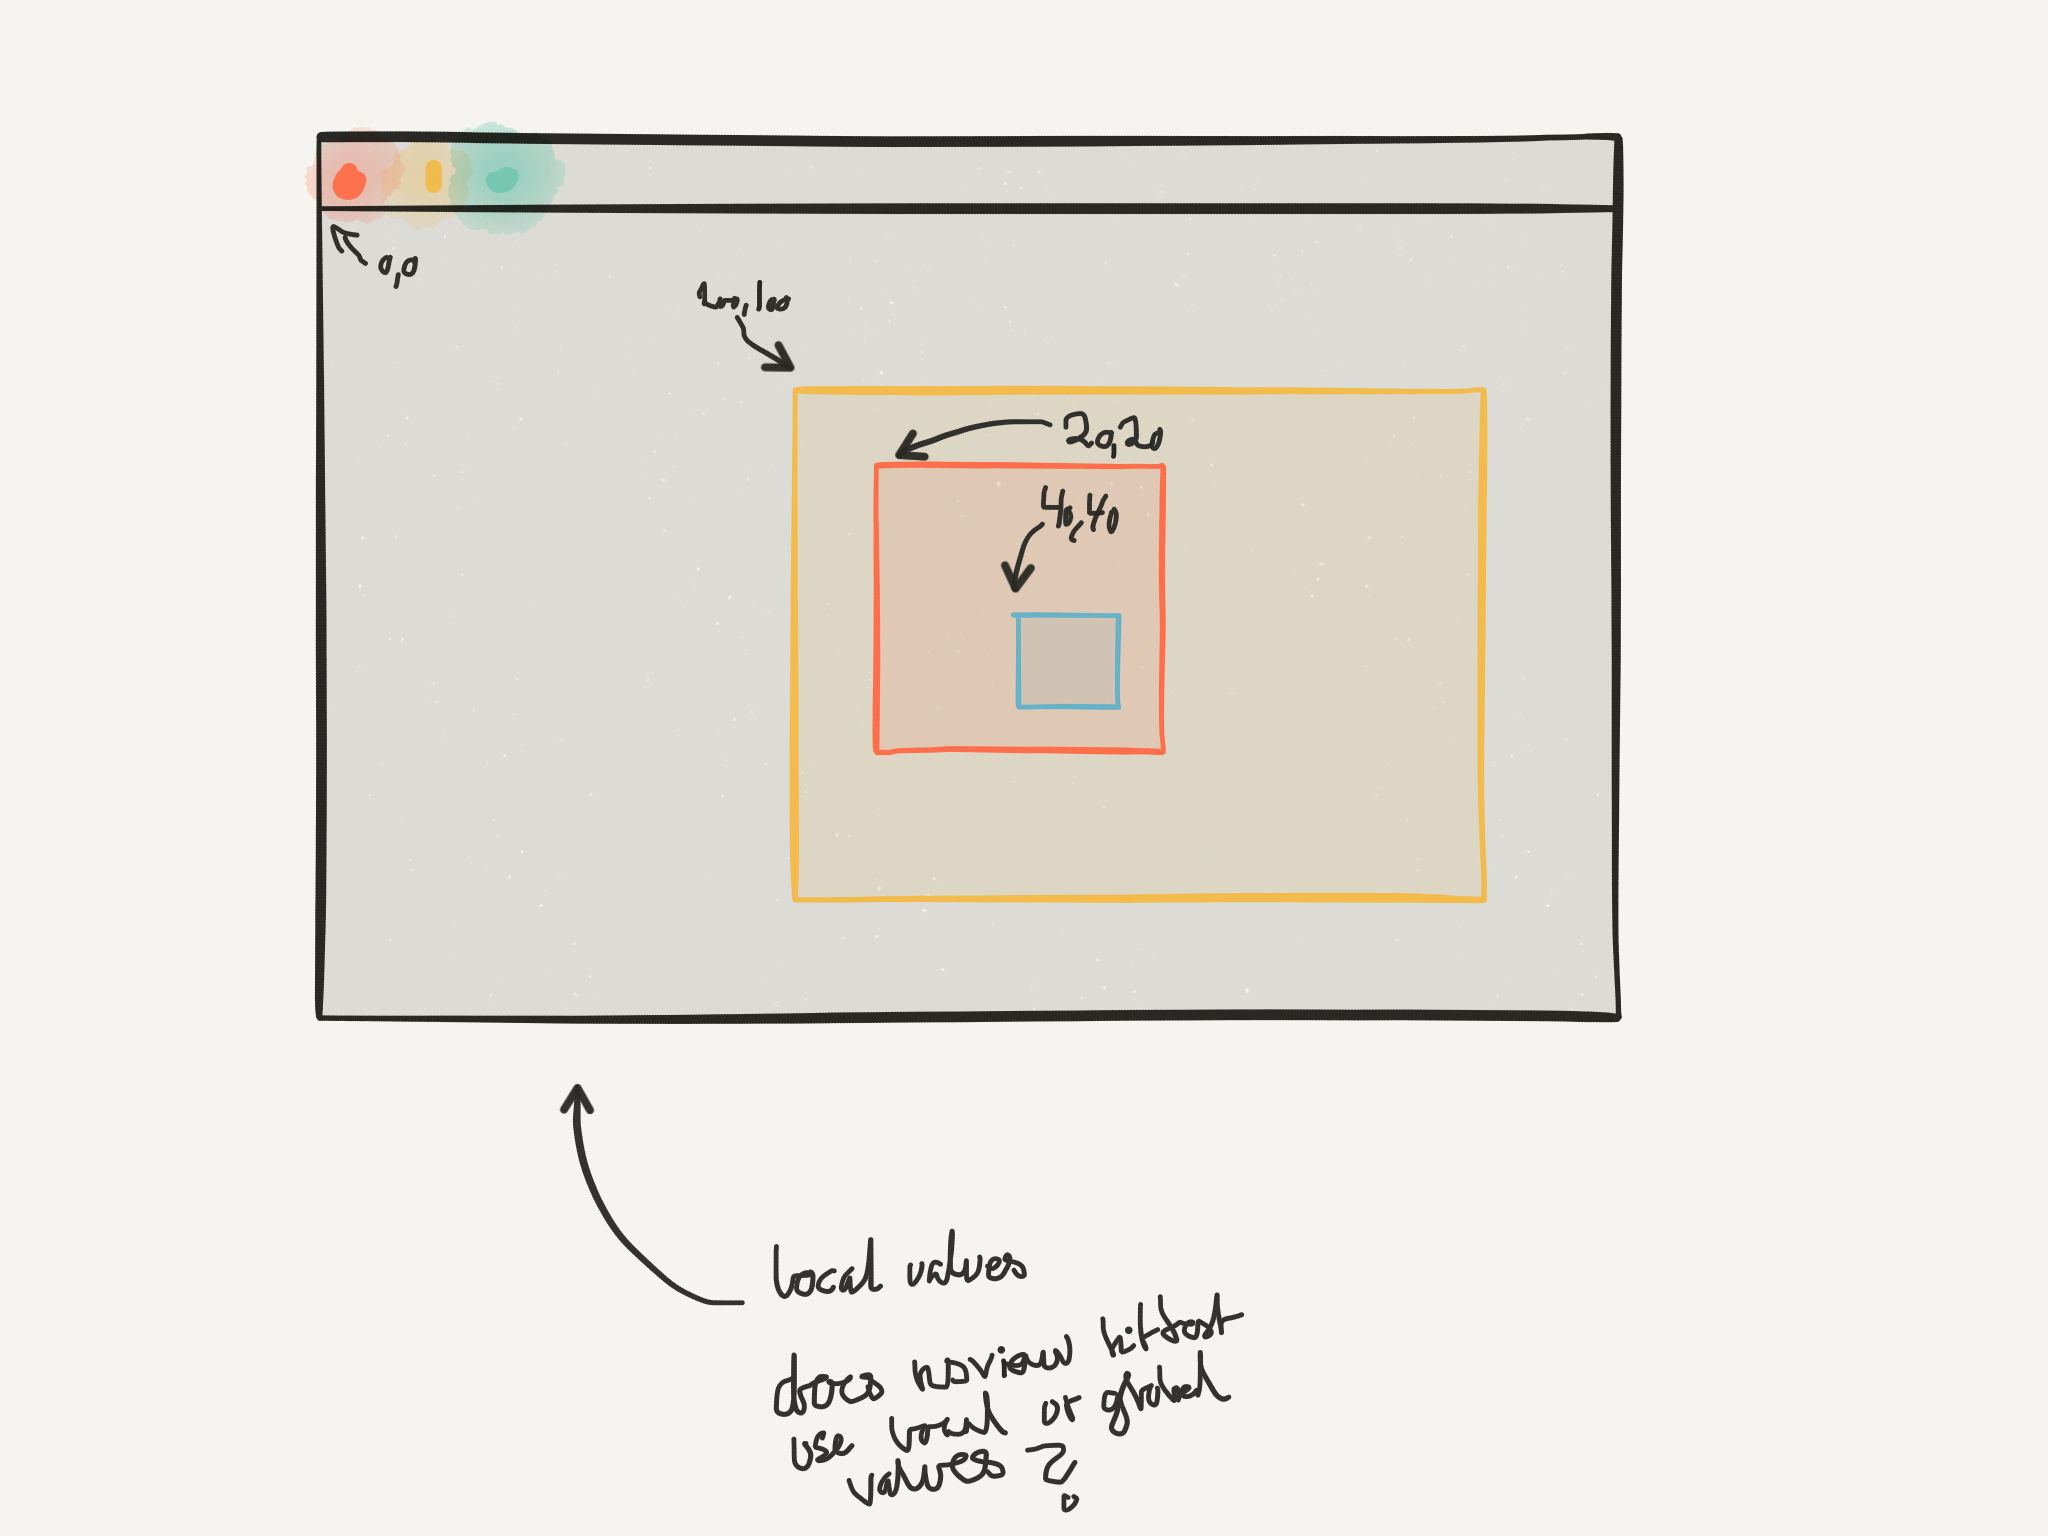 0,0
100,100
20,20
40,40
local values
does nsview hittest
use local or global
values?